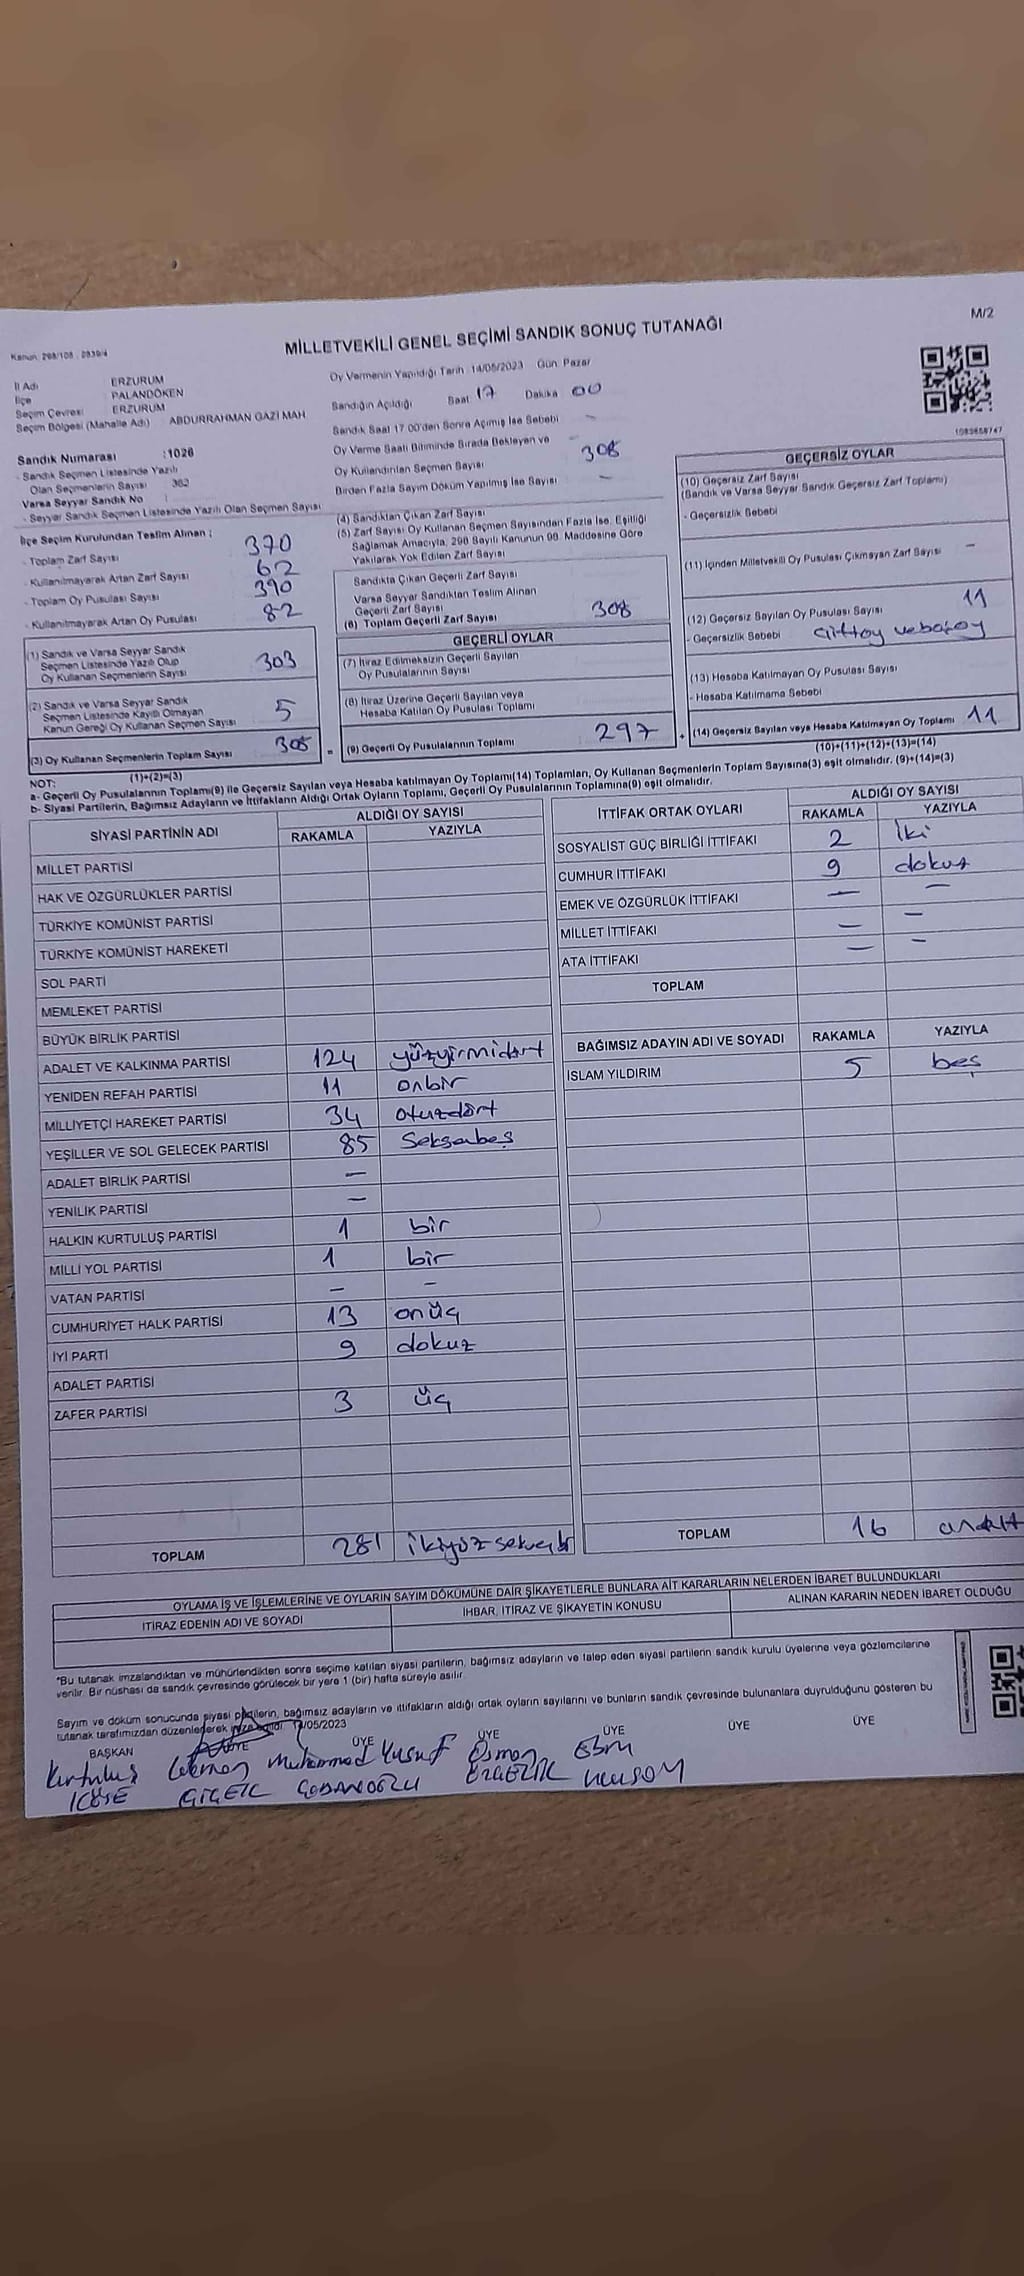 M/2
Kanun: 298/105 , 2839/4
MİLLETVEKİLİ GENEL SEÇİMİ SANDIK SONUÇ TUTANAĞI
İl Adı ERZURUM
İlçe PALANDÖKEN
Seçim Çevresi ERZURUM
Seçim Bölgesi (Mahalle Adı) ABDURRAHMAN GAZİ MAH
Sandık Numarası :1026
- Sandık Seçmen Listesinde Yazılı
Olan Seçmenlerin Sayısı 362
Varsa Seyyar Sandık No
- Seyyar Sandık Seçmen Listesinde Yazılı Olan Seçmen Sayısı
İlçe Seçim Kurulundan Teslim Alınan :
- Toplam Zarf Sayısı 370
- Kullanılmayarak Artan Zarf Sayısı 62
- Toplam Oy Pusulası Sayısı 390
- Kullanılmayarak Artan Oy Pusulası 82
(1) Sandık ve Varsa Seyyar Sandık
Seçmen Listesinde Yazılı Olup
Oy Kullanan Seçmenlerin Sayısı 303
(2) Sandık ve Varsa Seyyar Sandık
Seçmen Listesinde Kayıtlı Olmayan
Kanun Gereği Oy Kullanan Seçmen Sayısı 5
(3) Oy Kullanan Seçmenlerin Toplam Sayısı 308 =
(1)+(2)=(3)
Oy Vermenin Yapıldığı Tarih : 14/05/2023 Gün: Pazar
Sandığın Açıldığı Saat 17 Dakika 00
Sandık Saat 17:00'den Sonra Açılmış İse Sebebi -
Oy Verme Saati Bitiminde Sırada Bekleyen ve -
Oy Kullandırılan Seçmen Sayısı 308
Birden Fazla Sayım Döküm Yapılmış İse Sayısı -
(4) Sandıktan Çıkan Zarf Sayısı
(5) Zarf Sayısı Oy Kullanan Seçmen Sayısından Fazla İse, Eşitliği
Sağlamak Amacıyla, 298 Sayılı Kanunun 98. Maddesine Göre
Yakılarak Yok Edilen Zarf Sayısı
Sandıkta Çıkan Geçerli Zarf Sayısı
Varsa Seyyar Sandıktan Teslim Alınan
Geçerli Zarf Sayısı
(6) Toplam Geçerli Zarf Sayısı 308
GEÇERLİ OYLAR
(7) İtiraz Edilmeksizin Geçerli Sayılan
Oy Pusulalarının Sayısı
(8) İtiraz Üzerine Geçerli Sayılan veya
Hesaba Katılan Oy Pusulası Toplamı
(9) Geçerli Oy Pusulalarının Toplamı 297 +
1083658747
GEÇERSİZ OYLAR
(10) Geçersiz Zarf Sayısı
(Sandık ve Varsa Seyyar Sandık Geçersiz Zarf Toplamı)
- Geçersizlik Sebebi
(11) İçinden Milletvekili Oy Pusulası Çıkmayan Zarf Sayısı -
(12) Geçersiz Sayılan Oy Pusulası Sayısı 11
- Geçersizlik Sebebi çiftoy ve boş oy
(13) Hesaba Katılmayan Oy Pusulası Sayısı
- Hesaba Katılmama Sebebi
(14) Geçersiz Sayılan veya Hesaba Katılmayan Oy Toplamı 11
(10)+(11)+(12)+(13)=(14)
NOT:
a- Geçerli Oy Pusulalarının Toplamı(9) ile Geçersiz Sayılan veya Hesaba katılmayan Oy Toplamı(14) Toplamları, Oy Kullanan Seçmenlerin Toplam Sayısına(3) eşit olmalıdır. (9)+(14)=(3)
b- Siyasi Partilerin, Bağımsız Adayların ve İttifakların Aldığı Ortak Oyların Toplamı, Geçerli Oy Pusulalarının Toplamına(9) eşit olmalıdır.
SİYASİ PARTİNİN ADI ALDIĞI OY SAYISI
RAKAMLA YAZIYLA
MİLLET PARTİSİ
HAK VE ÖZGÜRLÜKLER PARTİSİ
TÜRKİYE KOMÜNİST PARTİSİ
TÜRKİYE KOMÜNİST HAREKETİ
SOL PARTİ
MEMLEKET PARTİSİ
BÜYÜK BİRLİK PARTİSİ
ADALET VE KALKINMA PARTİSİ 124 yüzyirmidört
YENİDEN REFAH PARTİSİ 11 onbir
MİLLİYETÇİ HAREKET PARTİSİ 34 otuzdört
YEŞİLLER VE SOL GELECEK PARTİSİ 85 Seksenbeş
ADALET BİRLİK PARTİSİ -
YENİLİK PARTİSİ -
HALKIN KURTULUŞ PARTİSİ 1 bir
MİLLİ YOL PARTİSİ 1 bir
VATAN PARTİSİ - -
CUMHURİYET HALK PARTİSİ 13 onüç
İYİ PARTİ 9 dokuz
ADALET PARTİSİ
ZAFER PARTİSİ 3 üç
TOPLAM 281 ikiyüzseksenbir
İTTİFAK ORTAK OYLARI ALDIĞI OY SAYISI
RAKAMLA YAZIYLA
SOSYALİST GÜÇ BİRLİĞİ İTTİFAKI 2 İki
CUMHUR İTTİFAKI 9 dokuz
EMEK VE ÖZGÜRLÜK İTTİFAKI - -
MİLLET İTTİFAKI - -
ATA İTTİFAKI - -
TOPLAM
BAĞIMSIZ ADAYIN ADI VE SOYADI RAKAMLA YAZIYLA
İSLAM YILDIRIM 5 beş
TOPLAM 16 onaltı
OYLAMA İŞ VE İŞLEMLERİNE VE OYLARIN SAYIM DÖKÜMÜNE DAİR ŞİKAYETLERLE BUNLARA AİT KARARLARIN NELERDEN İBARET BULUNDUKLARI
İTİRAZ EDENİN ADI VE SOYADI İHBAR, İTİRAZ VE ŞİKAYETİN KONUSU ALINAN KARARIN NEDEN İBARET OLDUĞU
*Bu tutanak imzalandıktan ve mühürlendikten sonra seçime katılan siyasi partilerin, bağımsız adayların ve talep eden siyasi partilerin sandık kurulu üyelerine veya gözlemcilerine
verilir. Bir nüshası da sandık çevresinde görülecek bir yere 1 (bir) hafta süreyle asılır.
Sayım ve döküm sonucunda siyasi partilerin, bağımsız adayların ve ittifakların aldığı ortak oyların sayılarını ve bunların sandık çevresinde bulunanlara duyrulduğunu gösteren bu
tutanak tarafımızdan düzenlenerek imza edildi. 14/05/2023
BAŞKAN ÜYE ÜYE ÜYE ÜYE ÜYE ÜYE
Kurtuluş Muhammed Yusuf Osman
KÖSE ÇİÇEK ÇOBANOĞLU